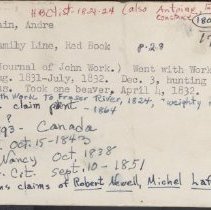 HBC. st-1823-24 (also Antoine
constant
180
ain, Andre
amily Line, Red Book
p. 28
Journal of John Work.) Went with Work
ug. 1831-July, 1832. Dec. 3, hunting
as. Took one beaver, April 4, 1832.
th Work to Fraser River, 1824, "weighty
claim plant
-1864
93- Canada
Oct. 15-1843
Nancy Oct 1838
Cit. Sept. 10-1851
ns claims of Robert Newell, Michel Laf